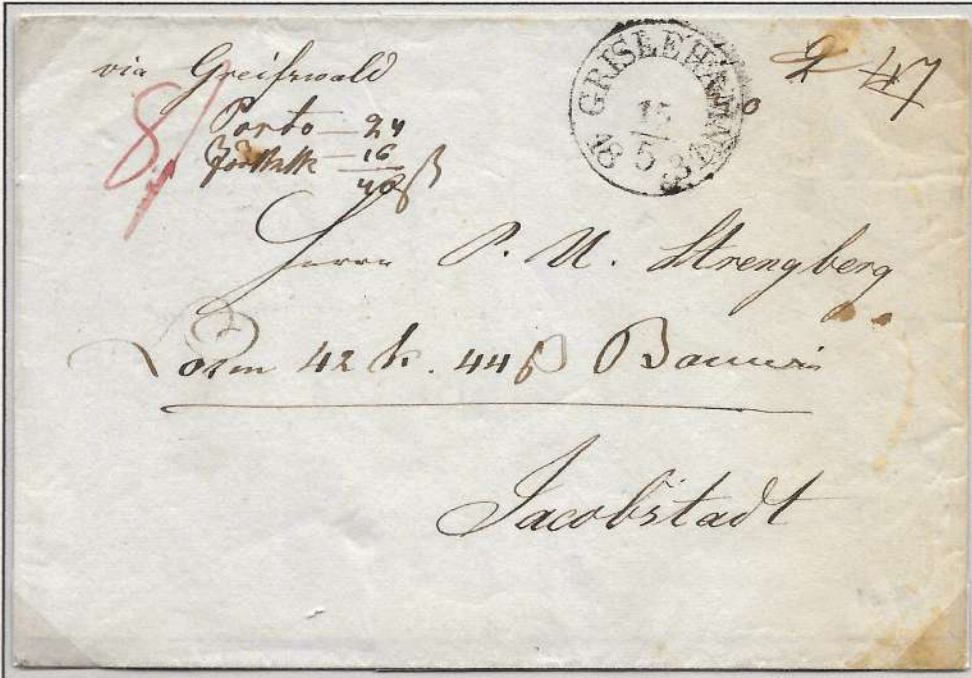 via Greifswald
8/
Porto — 24
16
40 ß
GRISLEHAMN
15
5
18 3
47
Herrn P. U. Strengberg
42 h. 44 ß
Jacobstadt